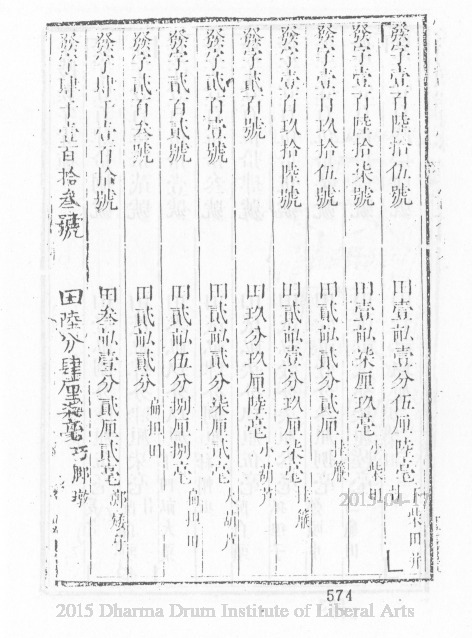 發字壹百陸拾伍號 田壹畝壹分伍厘陸毫
發字壹百陸拾柒號 田壹畝柒厘玖毫 小柴田
發字壹百玖拾伍號 田貳畝貳分貳厘
發字壹百玖拾陸號 田貳畝壹分玖厘柒毫
發字貳百號 田玖分玖厘陸毫 小葫芦
發字貳百壹號 田貳畝貳分柒厘貳毫 大葫芦
發字貳百貳號 田貳畝伍分捌厘捌毫 扁担田
發字貳百叁號 田貳畝貳分 扁担田
發字肆千壹百拾號 田叁畝壹分貳厘貳毫
發字肆千壹百拾叁號 田陸分肆厘柒毫
574
2015-04-17
2015 Dharma Drum Institute of Liberal Arts